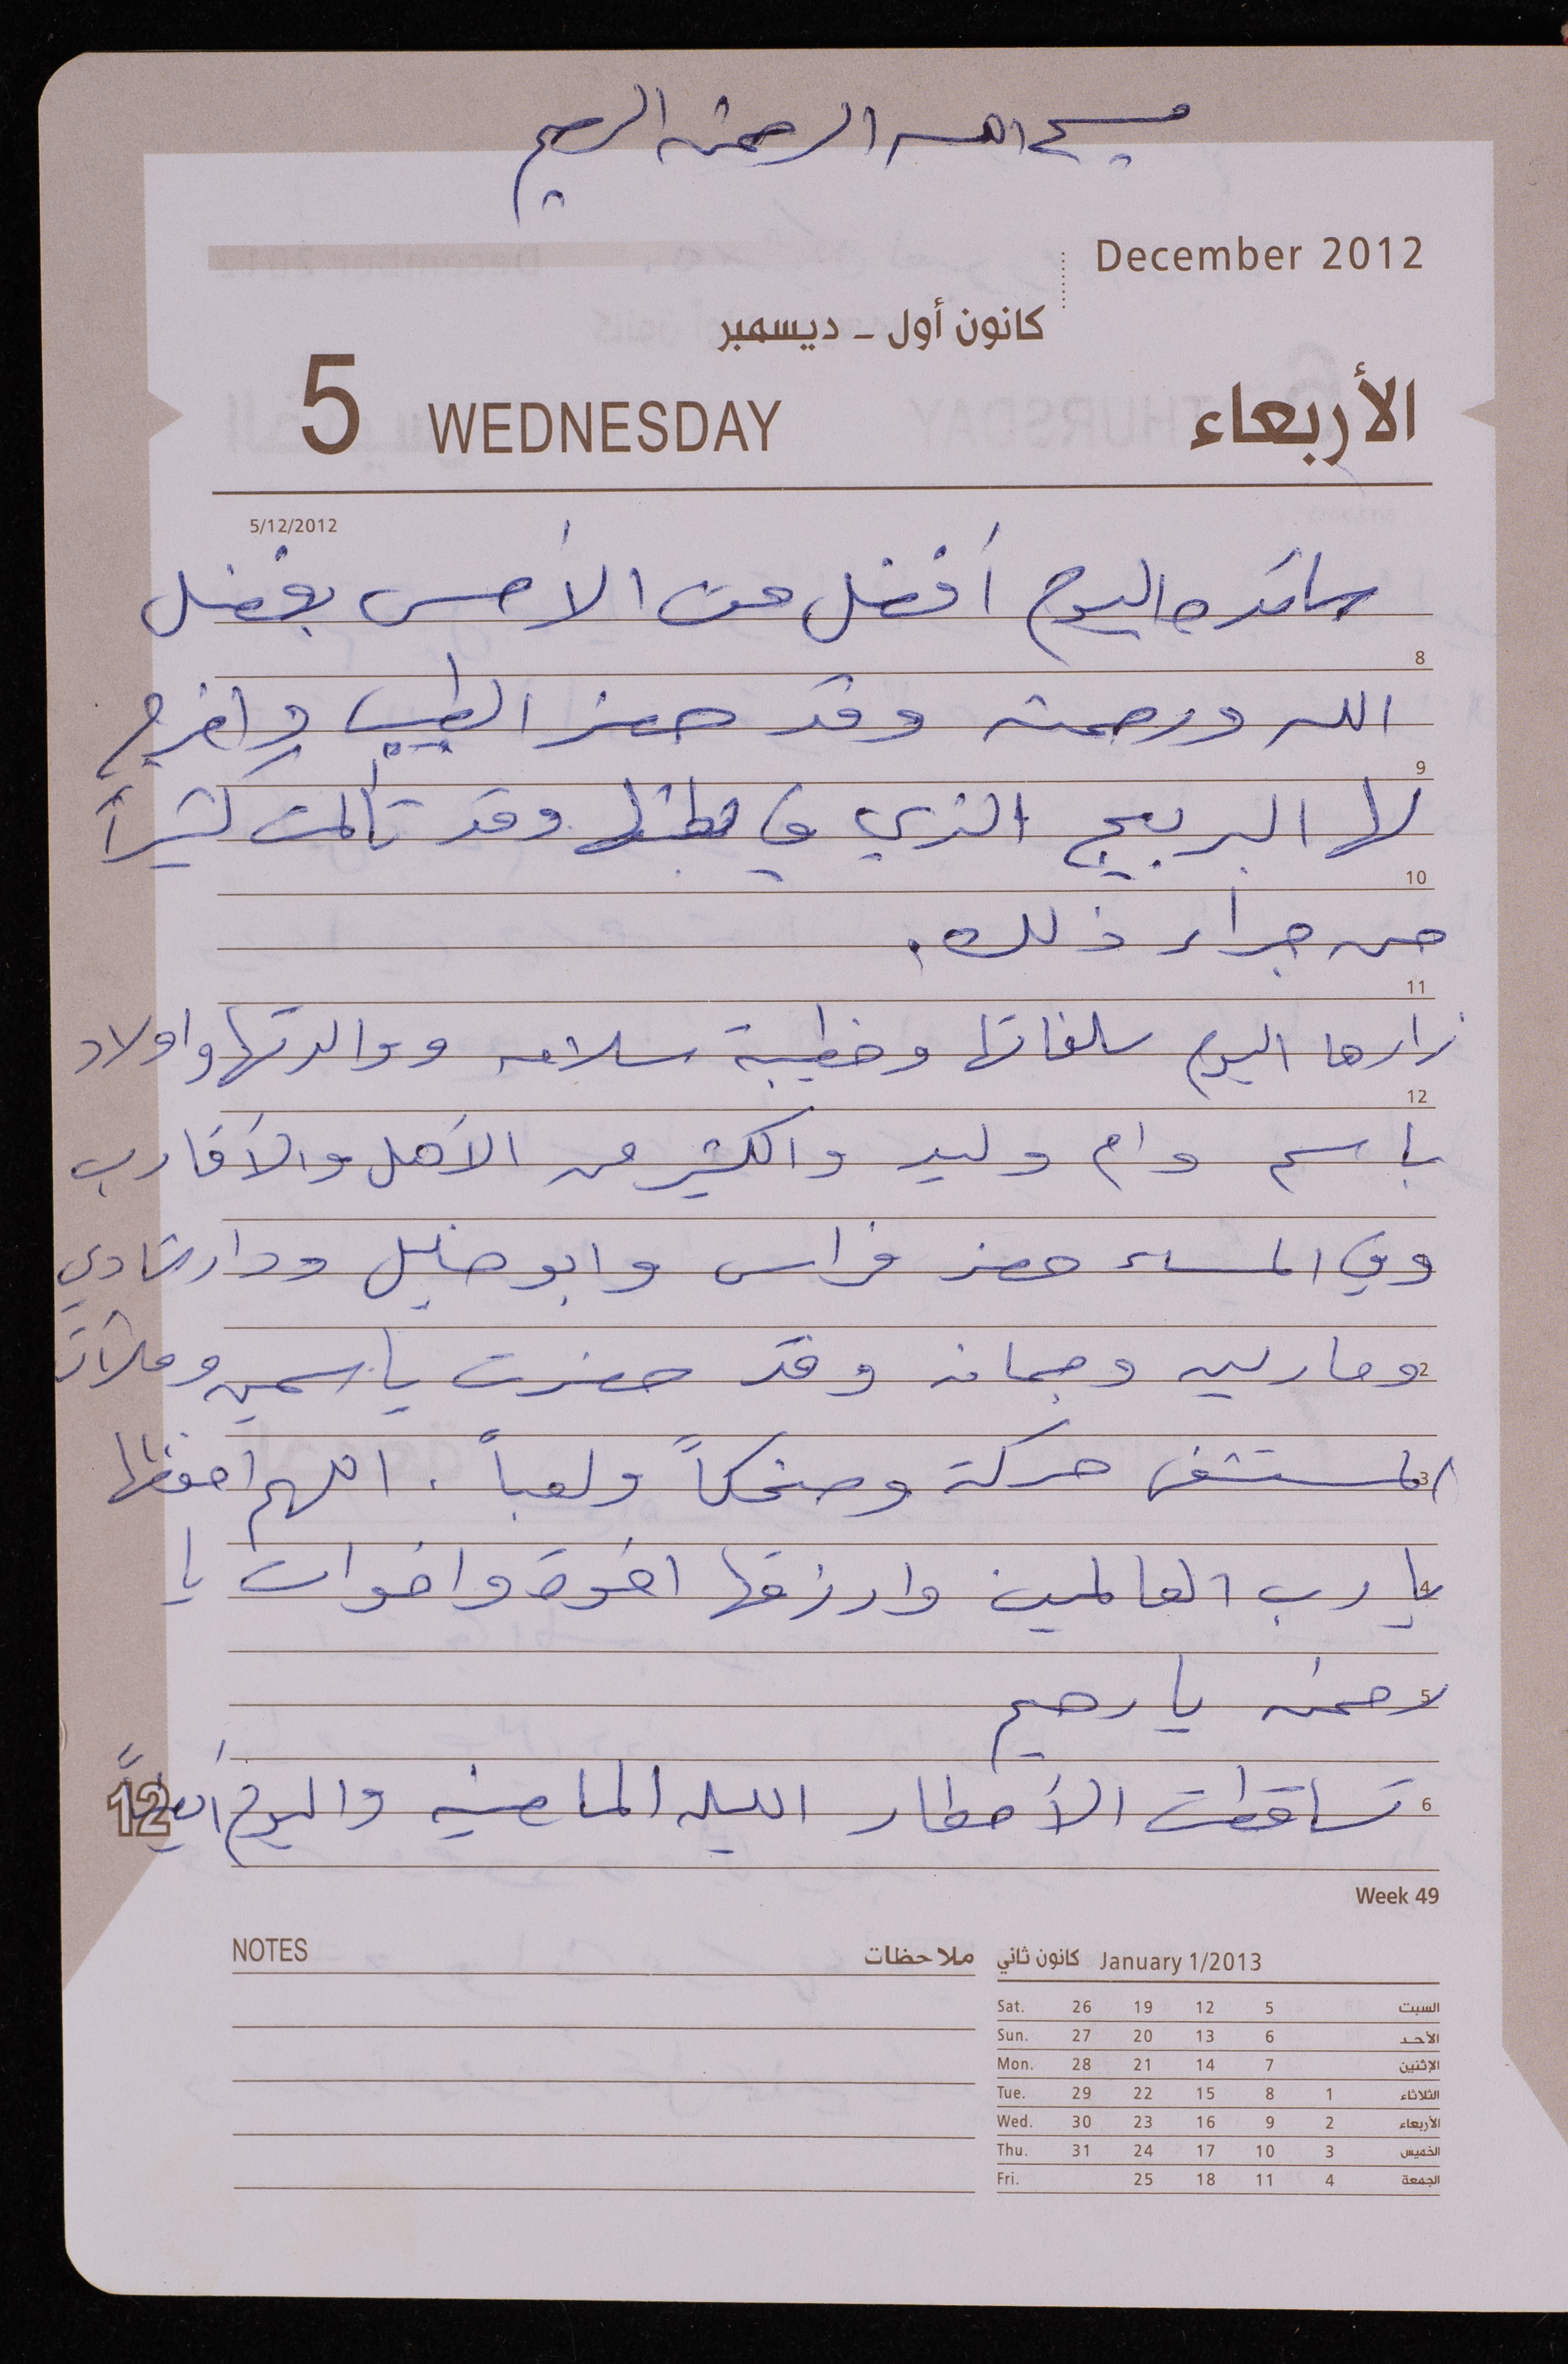 بسم الله الرحمن الرحيم
December 2012
كانون أول - ديسمبر
5 WEDNESDAY الأربعاء
5/12/2012
سائده اليوم أفضل من الأمس بفضل
8
الله ورحمته وقد حضر الطبيب واخرج
9
لها البربيج الذي في بطنها وقد تألمت كثيراً
10
من جراء ذلك.
11
زارها اليوم سلفاتها وخطيبة سلامه ووالدتها واولاد
12
باسم وام وليد والكثير من الأهل والأقارب
وفي المساء حضر فراس وابو خليل ودار شادي
2 ومارلين وجمانه وقد حضرت ياسمين وملأت
3 المستشفى حركة وضحكاً ولعباً. اللهم احفظها
4 يا رب العالمين وارزقها اخوة واخوات يا
5 رحمن يا رحيم
6 تساقطت الأمطار الليله الماضيه واليوم أيضاً
12
Week 49
NOTES ملاحظات
January 1/2013 كانون ثاني
Sat. 26 19 12 5 السبت
Sun. 27 20 13 6 الأحد
Mon. 28 21 14 7 الإثنين
Tue. 29 22 15 8 1 الثلاثاء
Wed. 30 23 16 9 2 الأربعاء
Thu. 31 24 17 10 3 الخميس
Fri. 25 18 11 4 الجمعة